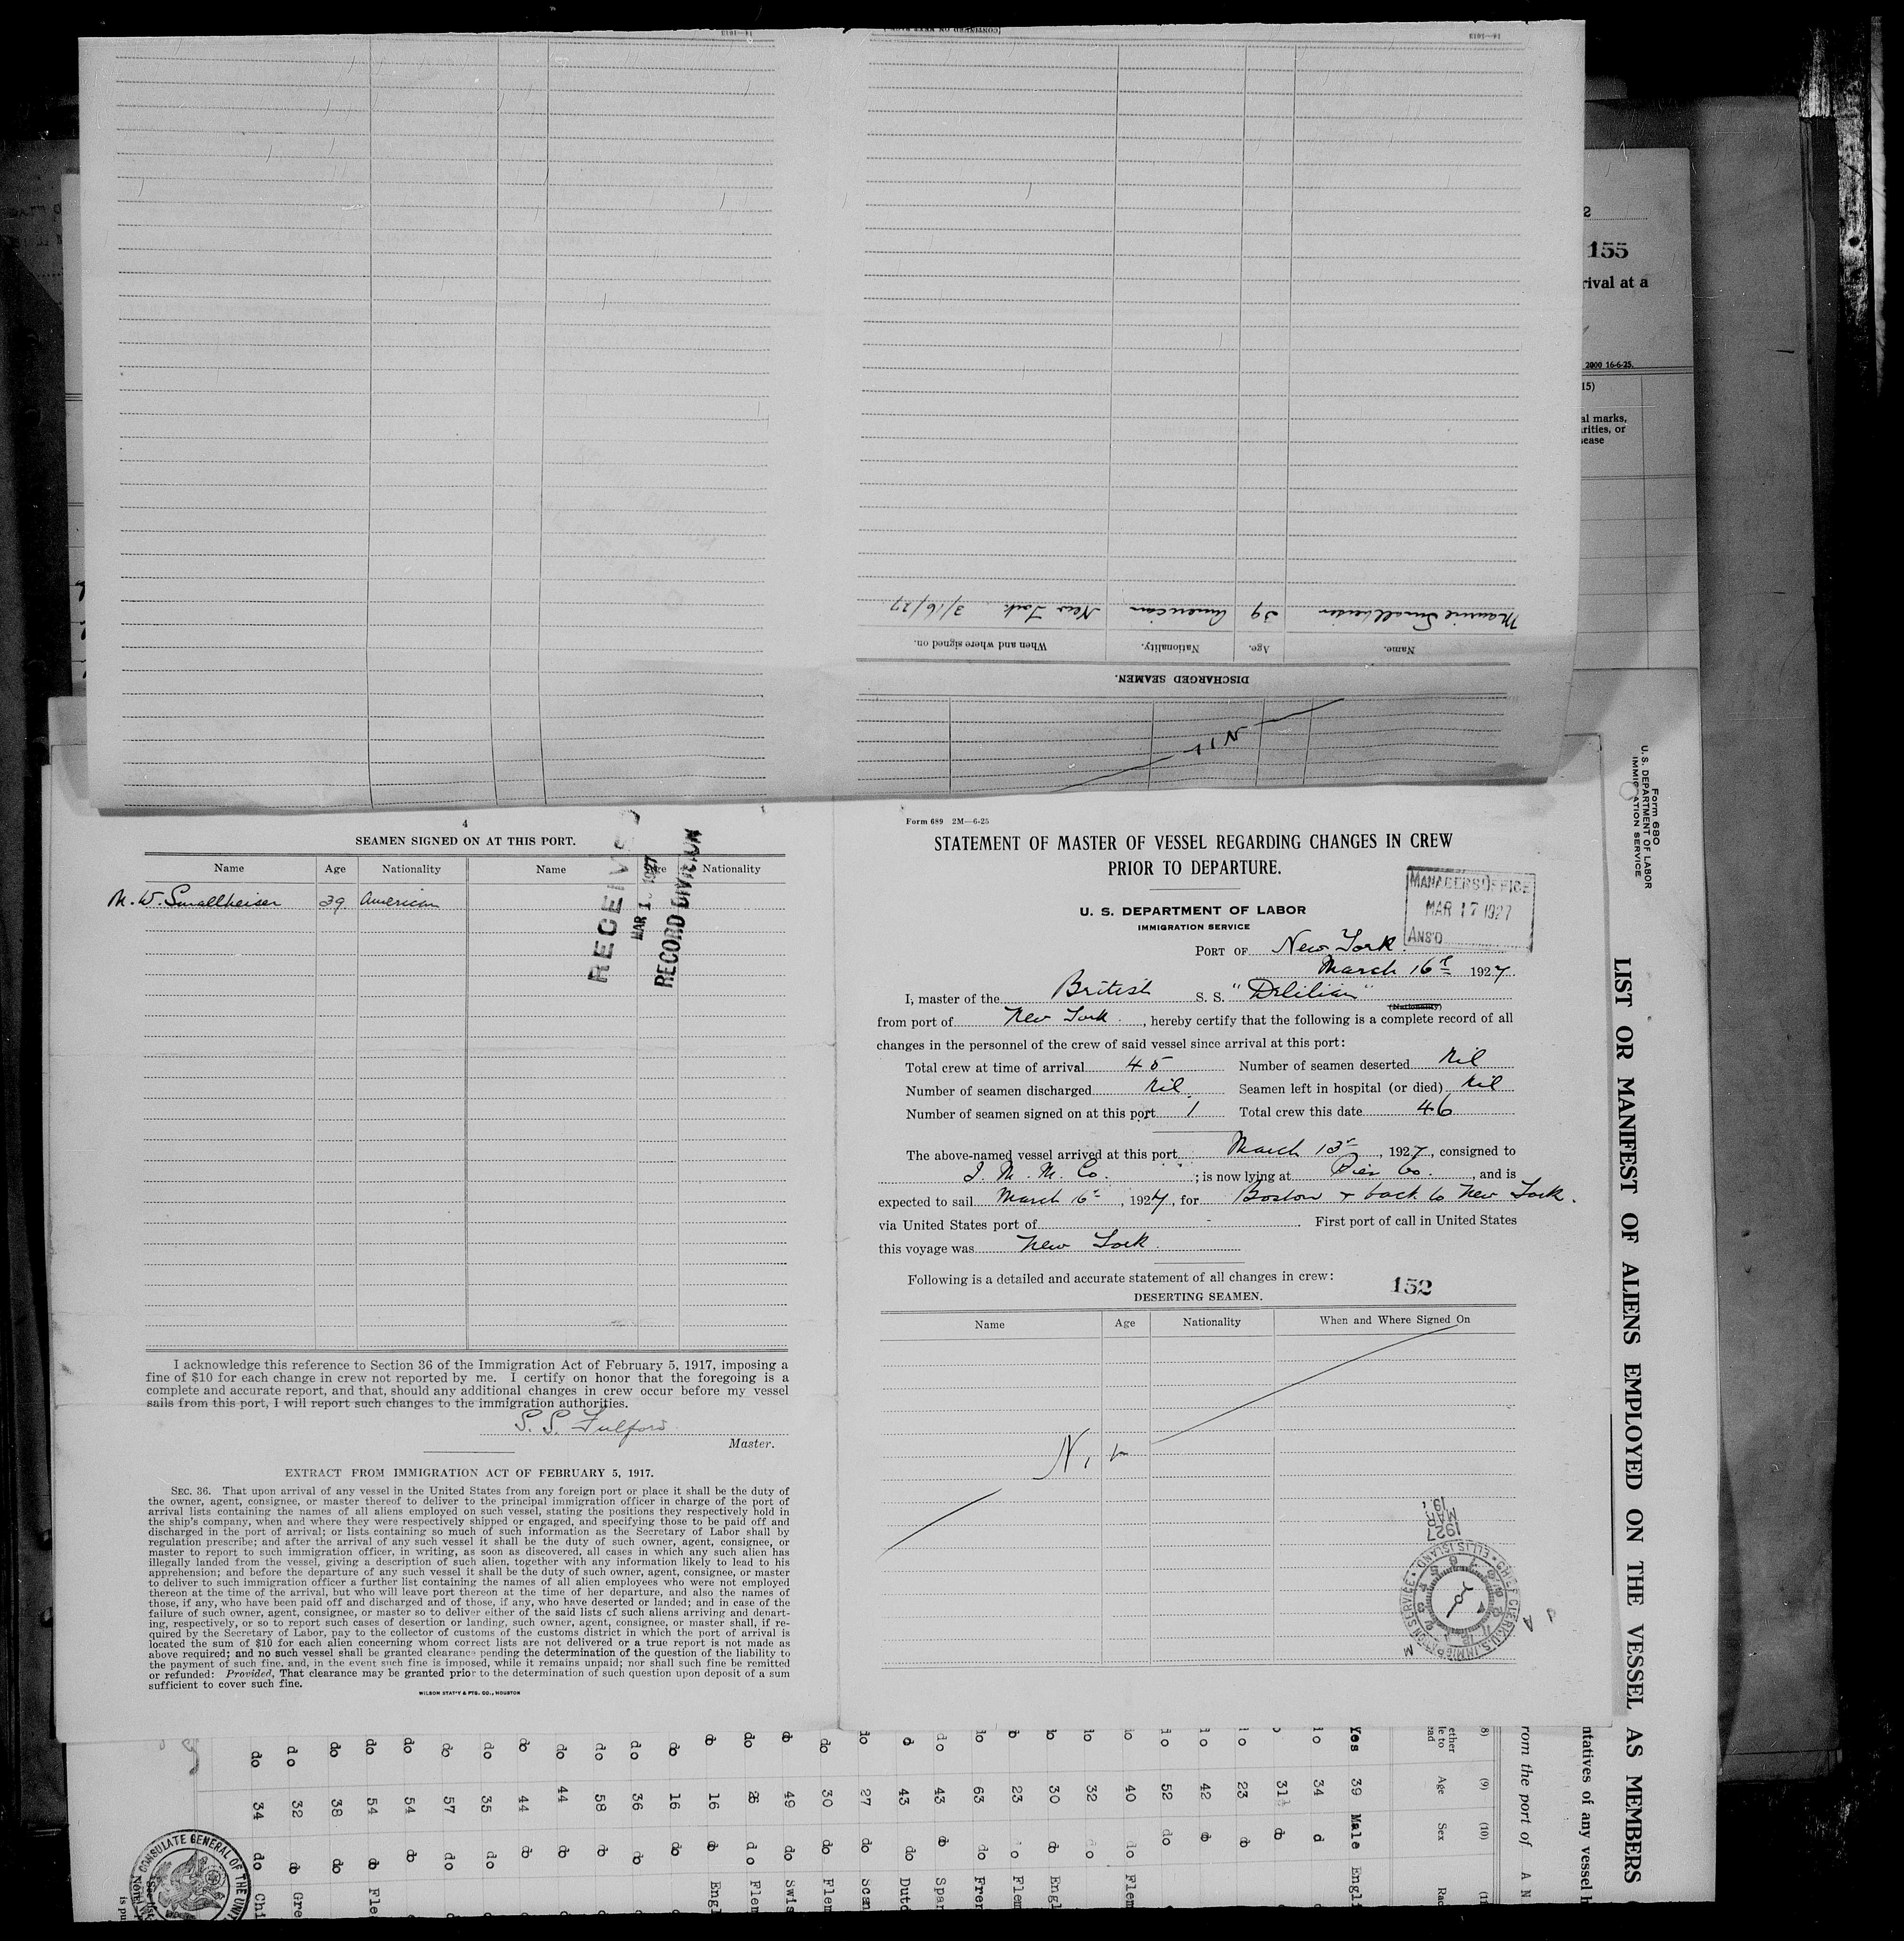 16—1013
[CONTINUED ON NEXT PAGE.]
16—1013
2
155
rival at a
2000 16-6-25.
15)
al marks,
rities, or
sease
DISCHARGED SEAMEN.
Name. Age. Nationality. When and where signed on.
Maurice Smallheiser 39 American New York 3/16/27
Nil
4
SEAMEN SIGNED ON AT THIS PORT.
Name Age Nationality Name Age Nationality
M. W. Smallheiser 39 American
RECEIVED
MAR 1 1927
RECORD DIVISION
I acknowledge this reference to Section 36 of the Immigration Act of February 5, 1917, imposing a
fine of $10 for each change in crew not reported by me. I certify on honor that the foregoing is a
complete and accurate report, and that, should any additional changes in crew occur before my vessel
sails from this port, I will report such changes to the immigration authorities.
S. S. Fulford
Master.
EXTRACT FROM IMMIGRATION ACT OF FEBRUARY 5, 1917.
SEC. 36. That upon arrival of any vessel in the United States from any foreign port or place it shall be the duty of
the owner, agent, consignee, or master thereof to deliver to the principal immigration officer in charge of the port of
arrival lists containing the names of all aliens employed on such vessel, stating the positions they respectively hold in
the ship's company, when and where they were respectively shipped or engaged, and specifying those to be paid off and
discharged in the port of arrival; or lists containing so much of such information as the Secretary of Labor shall by
regulation prescribe; and after the arrival of any such vessel it shall be the duty of such owner, agent, consignee, or
master to report to such immigration officer, in writing, as soon as discovered, all cases in which any such alien has
illegally landed from the vessel, giving a description of such alien, together with any information likely to lead to his
apprehension; and before the departure of any such vessel it shall be the duty of such owner, agent, consignee, or master
to deliver to such immigration officer a further list containing the names of all alien employees who were not employed
thereon at the time of the arrival, but who will leave port thereon at the time of her departure, and also the names of
those, if any, who have been paid off and discharged and of those, if any, who have deserted or landed; and in case of the
failure of such owner, agent, consignee, or master so to deliver either of the said lists of such aliens arriving and depart-
ing, respectively, or so to report such cases of desertion or landing, such owner, agent, consignee, or master shall, if re-
quired by the Secretary of Labor, pay to the collector of customs of the customs district in which the port of arrival is
located the sum of $10 for each alien concerning whom correct lists are not delivered or a true report is not made as
above required; and no such vessel shall be granted clearance pending the determination of the question of the liability to
the payment of such fine, and, in the event such fine is imposed, while it remains unpaid; nor shall such fine be remitted
or refunded: Provided, That clearance may be granted prior to the determination of such question upon deposit of a sum
sufficient to cover such fine.
WILSON STAT'Y & PTG. CO., HOUSTON
Form 689 2M—6-25
STATEMENT OF MASTER OF VESSEL REGARDING CHANGES IN CREW
PRIOR TO DEPARTURE.
U. S. DEPARTMENT OF LABOR
IMMIGRATION SERVICE
MANAGERS OFFICE
MAR 17 1927
ANS'D
PORT OF New York
March 16th 1927.
I, master of the British S. S. "Delilian"
(Nationality)
from port of New York, hereby certify that the following is a complete record of all
changes in the personnel of the crew of said vessel since arrival at this port:
Total crew at time of arrival 45 Number of seamen deserted Nil
Number of seamen discharged Nil Seamen left in hospital (or died) Nil
Number of seamen signed on at this port 1 Total crew this date 46
The above-named vessel arrived at this port March 13th, 1927, consigned to
I. M. M. Co. ; is now lying at Pier 60. , and is
expected to sail March 16th, 1927, for Boston & back to New York.
via United States port of - . First port of call in United States
this voyage was New York.
Following is a detailed and accurate statement of all changes in crew:
152
DESERTING SEAMEN.
Name Age Nationality When and Where Signed On
Nil
1927
MAR
19
CHIEF CLERK, U.S. IMMIGRATION SERVICE • ELLIS ISLAND •
Form 680
U. S. DEPARTMENT OF LABOR
IMMIGRATION SERVICE
LIST OR MANIFEST OF ALIENS EMPLOYED ON THE VESSEL AS MEMBERS
ntatives of any vessel h
rom the port of AN
(8) (9) (10) (11
ether
le to
ead
Age Sex Rac
Yes 39 Male Engli
do 34 d
31
do 23 do
do 42 do
do 52 do
do 40 do Flem
do 32 do
do 30 do Engl
do 23 do Flem
do 63 do Fren
do 43 do Span
do 43 do Dutc
do 27 do Scan
do 30 do Flem
do 49 do Swis
do 28 do Flem
do 16 do Engl
do 16 do
do 36 do
do 58 do
do 44 do
do 44 do
do 35 do
do 57 do
do 54 do
do 54 do Fle
do 38 do
do 32 do Gre
do 34 do Chi
CONSULATE GENERAL OF THE UNIT